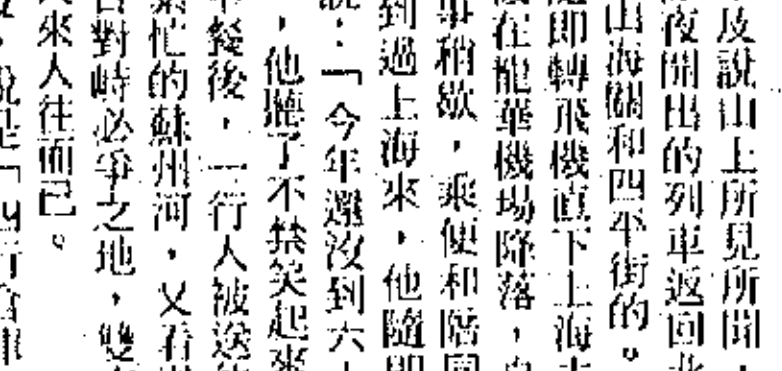 及說山上所見所聞，
夜開出的列車返回
山海關和四平街的。
即轉飛機直下上海
在龍華機場降落，
事稍歇，乘便和階
到過上海來，他隨即
：「今年還沒到六
，他聽了不禁笑起來
餐後，一行人被送
忙的蘇州河，又看
對峙必爭之地，雙
來人往而已。
說是「四行倉庫